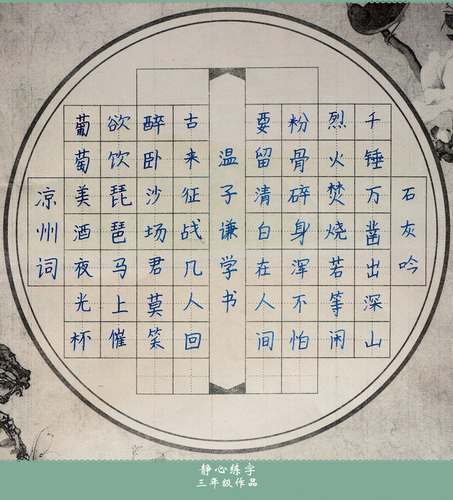 石灰吟
千锤万凿出深山
烈火焚烧若等闲
粉骨碎身浑不怕
要留清白在人间
凉州词
葡萄美酒夜光杯
欲饮琵琶马上催
醉卧沙场君莫笑
古来征战几人回
温子谦学书
静心练字
三年级作品